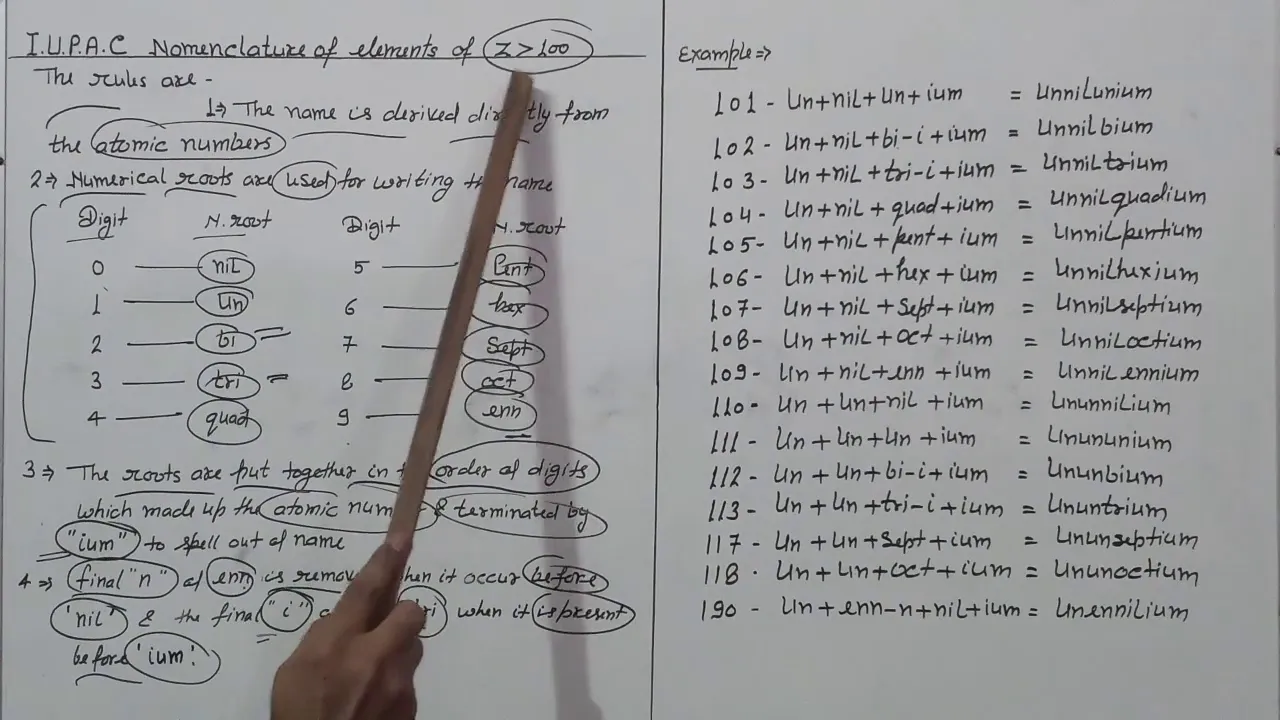 I.U.P.A.C Nomenclature of elements of Z > 100
The rules are -
1⇒ The name is derived directly from
the atomic numbers
2⇒ Numerical roots are used for writing the name
Digit N.root Digit N.root
0 — nil 5 — Pent
1 — un 6 — hex
2 — bi 7 — Sept
3 — tri 8 — oct
4 — quad 9 — enn
3⇒ The roots are put together in order of digits
which made up the atomic & terminated by
"ium" to spell out of name
4⇒ final "n" of enn is when it occur before
'nil' & the final "i" when it is present
before 'ium'.
Example ⇒
101 - Un+nil+un+ium = Unnilunium
102 - Un+nil+bi-i+ium = Unnilbium
103 - Un+nil+tri-i+ium = Unniltrium
104 - Un+nil+quad+ium = Unnilquadium
105 - Un+nil+pent+ium = Unnilpentium
106 - Un+nil+hex+ium = Unnilhexium
107 - Un+nil+Sept+ium = Unnilseptium
108 - Un+nil+oct+ium = Unniloctium
109 - Un+nil+enn+ium = Unnilennium
110 - Un+un+nil+ium = Ununnilium
111 - Un+Un+Un+ium = Unununium
112 - Un+Un+bi-i+ium = Ununbium
113 - Un+Un+tri-i+ium = Ununtrium
117 - Un+Un+Sept+ium = Ununseptium
118 - Un+Un+oct+ium = Ununoctium
190 - Un+enn-n+nil+ium = Unennilium